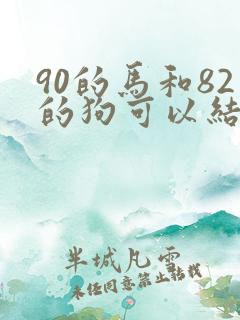 90的馬和82
的狗可以結
半城凡雲
未经同意禁止转载